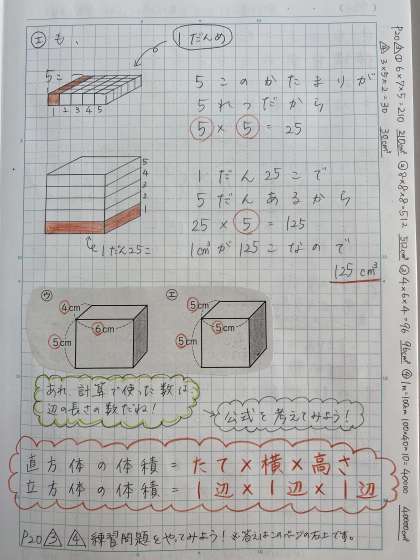 エ も、
1だんめ
5こ
1 2 3 4 5
5このかたまりが
5れつだから
5×5=25
5
4
3
2
1
1だん25こ
1だん25こで
5だんあるから
25×5=125
1cm³が125こなので
125cm³
ウ
4cm
6cm
5cm
エ
5cm
5cm
5cm
あれ、計算で使った数は
辺の長さの数だね！
公式を考えてみよう！
直方体の体積=たて×横×高さ
立方体の体積=1辺×1辺×1辺
P20 3 4 練習問題をやってみよう！※答えはこのページの右上です。
P20 3 ① 6×7×5=210 210cm³ ② 8×8×8=512 512cm³ ③ 4×6×4=96 96cm³
3×5×2=30 30cm³